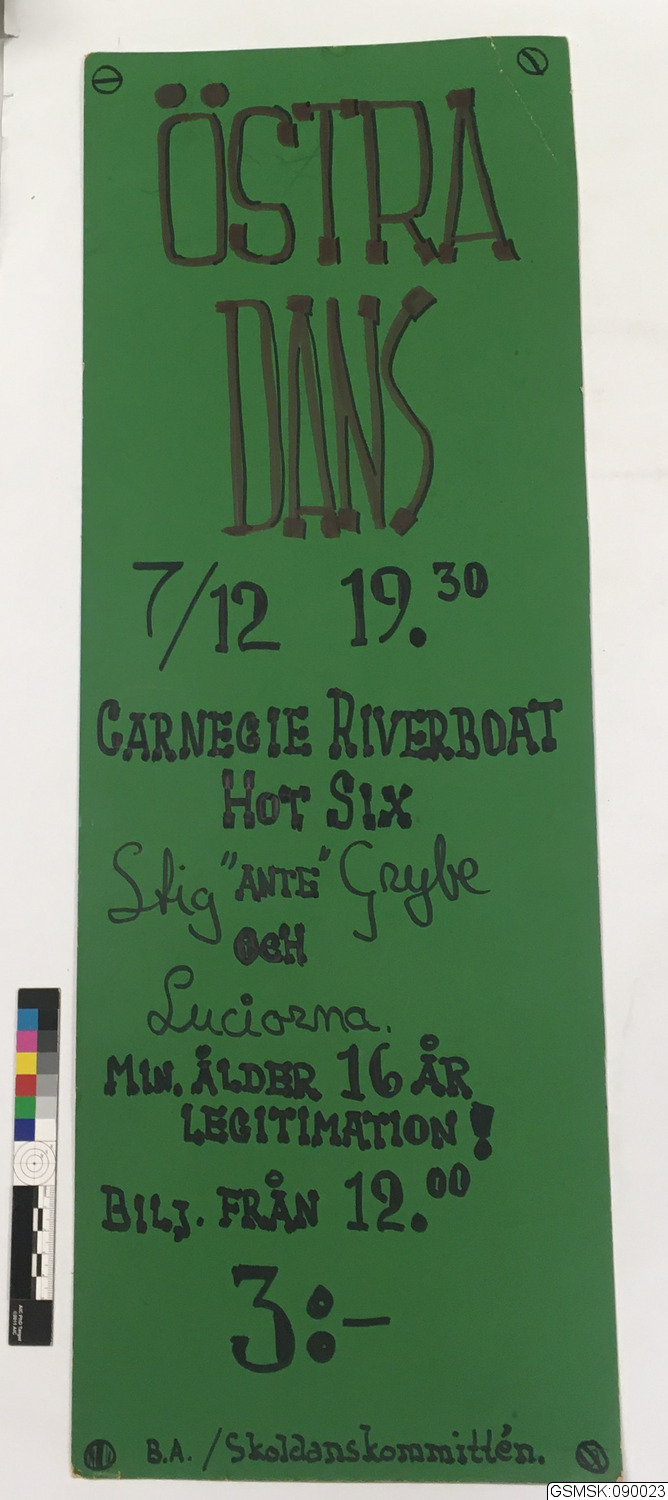 ÖSTRA
DANS
7/12 19.30
CARNEGIE RIVERBOAT
HOT SIX
Stig "ANTE" Grybe
OCH
Luciorna.
MIN. ÅLDER 16 ÅR
LEGITIMATION!
BILJ. FRÅN 12.00
3:-
B.A. /Skoldanskommittén.
GSMSK:090023